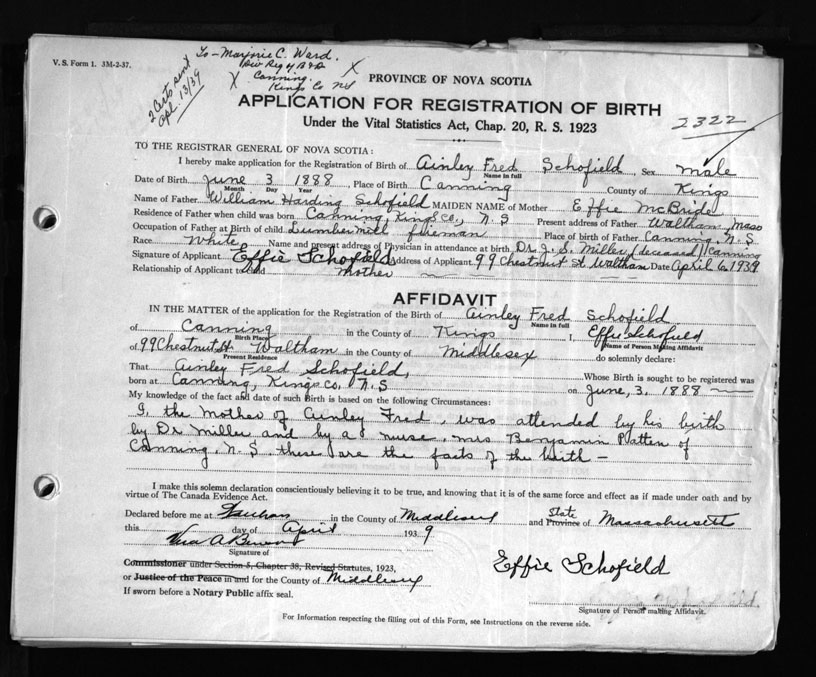 V. S. Form 1. 3M-2-37.
2 Certs sent
Apl. 13/39
To - Marjorie C. Ward.
Div Reg of B & D
X Canning. X
Kings Co NS
PROVINCE OF NOVA SCOTIA
APPLICATION FOR REGISTRATION OF BIRTH
Under the Vital Statistics Act, Chap. 20, R. S. 1923
2322
TO THE REGISTRAR GENERAL OF NOVA SCOTIA:
I hereby make application for the Registration of Birth of Ainley Fred Schofield, Sex male
Name in full
Date of Birth June 3 1888, Place of Birth Canning County of Kings
Month Day Year
Name of Father William Harding Schofield MAIDEN NAME of Mother Effie McBride
Residence of Father when child was born Canning, Kings Co., N. S Present address of Father Waltham, Mass
Occupation of Father at Birth of child Lumbermill fireman Place of birth of Father Canning N. S.
Race White Name and present address of Physician in attendance at birth Dr. J. S. Miller (deceased) Canning
Signature of Applicant Effie Schofield Address of Applicant 99 Chestnut St Waltham Date April 6 1939
Relationship of Applicant to child mother
AFFIDAVIT
IN THE MATTER of the application for the Registration of the Birth of Ainley Fred Schofield
Name in full
of Canning in the County of Kings I, Effie Schofield
Birth Place Name of Person Making Affidavit
of 99 Chestnut St. Waltham in the County of Middlesex do solemnly declare:
Present Residence
That Ainley Fred Schofield, Whose Birth is sought to be registered was
born at Canning, Kings Co, N. S on June, 3, 1888
My knowledge of the fact and date of such Birth is based on the following Circumstances:
I, the mother of Ainley Fred, was attended by his birth
by Dr Miller and by a nurse, Mrs Benjamin Patten of
Canning, N. S. these are the facts of the birth -
I make this solemn declaration conscientiously believing it to be true, and knowing that it is of the same force and effect as if made under oath and by
virtue of The Canada Evidence Act.
Declared before me at Waltham in the County of Middlesex and Province State of Massachusetts
this day of April 1939
Signature of
Commissioner under Section 5, Chapter 38, Revised Statutes, 1923,
or Justice of the Peace in and for the County of Middlesex
If sworn before a Notary Public affix seal.
Effie Schofield
Signature of Person making Affidavit.
For Information respecting the filling out of this Form, see Instructions on the reverse side.